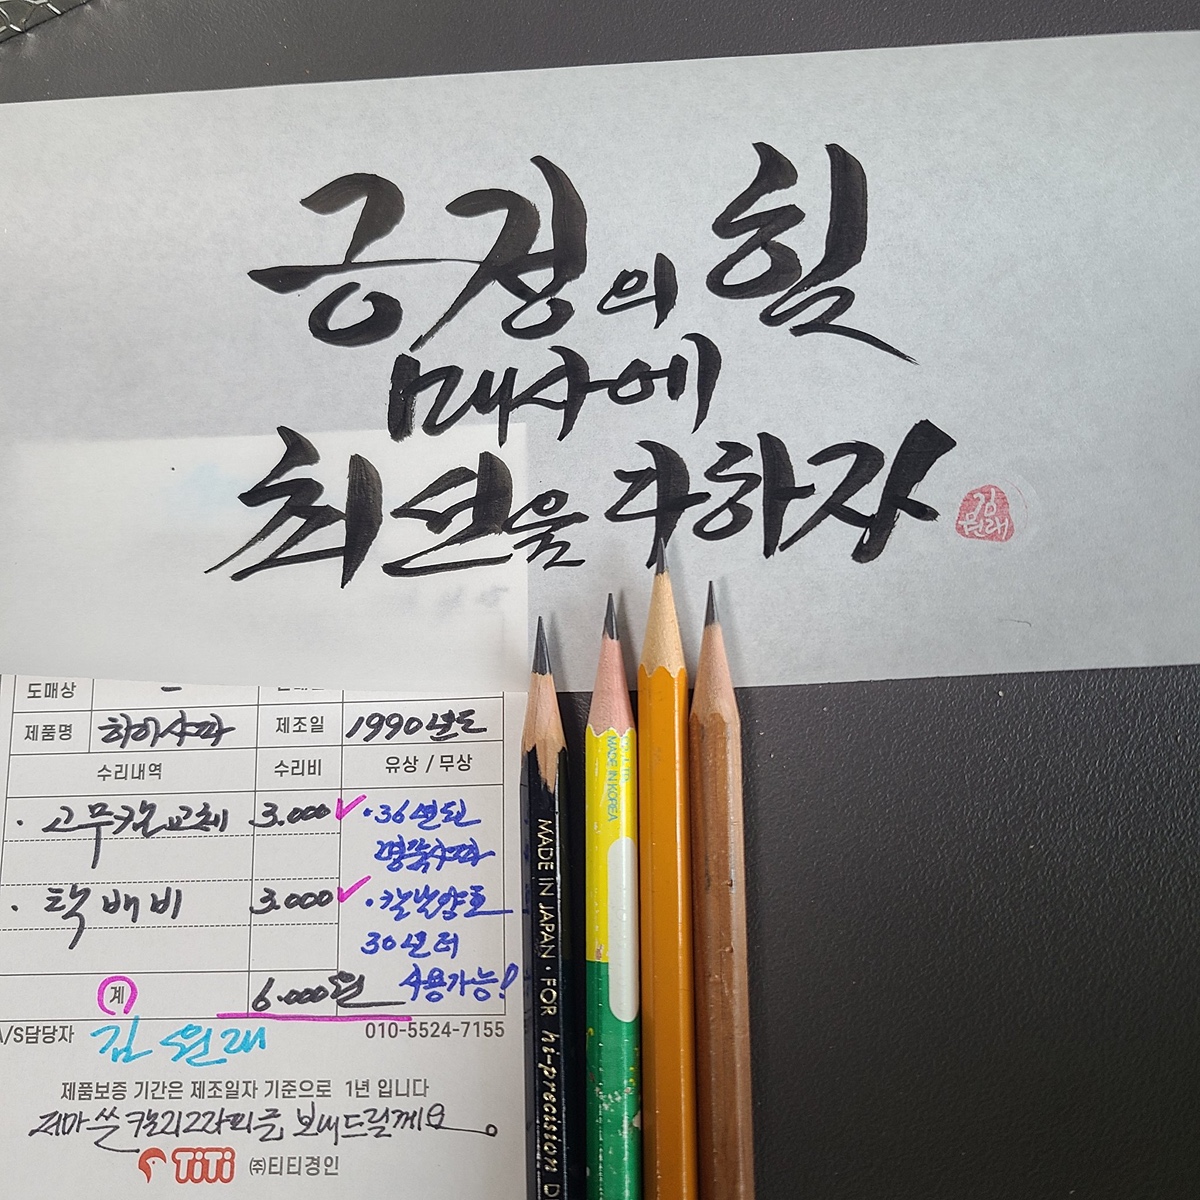 긍정의 힘
매사에
최선을 다하자
김
원래
도매상
제품명 하이샤파 제조일 1990년도
수리내역 수리비 유상 / 무상
· 고무캄교체 3.000 · 36년된
명품샤파
· 택배비 3.000 · 칼날양호
30년 더
사용가능!
계 6.000원
A/S담당자 김원래 010-5524-7155
제품보증 기간은 제조일자 기준으로 1년 입니다
제가 쓴 캘리그라피를 보내드릴게요.
TiTi ㈜티티경인
MADE IN JAPAN · FOR hi-precision D
MADE IN KOREA